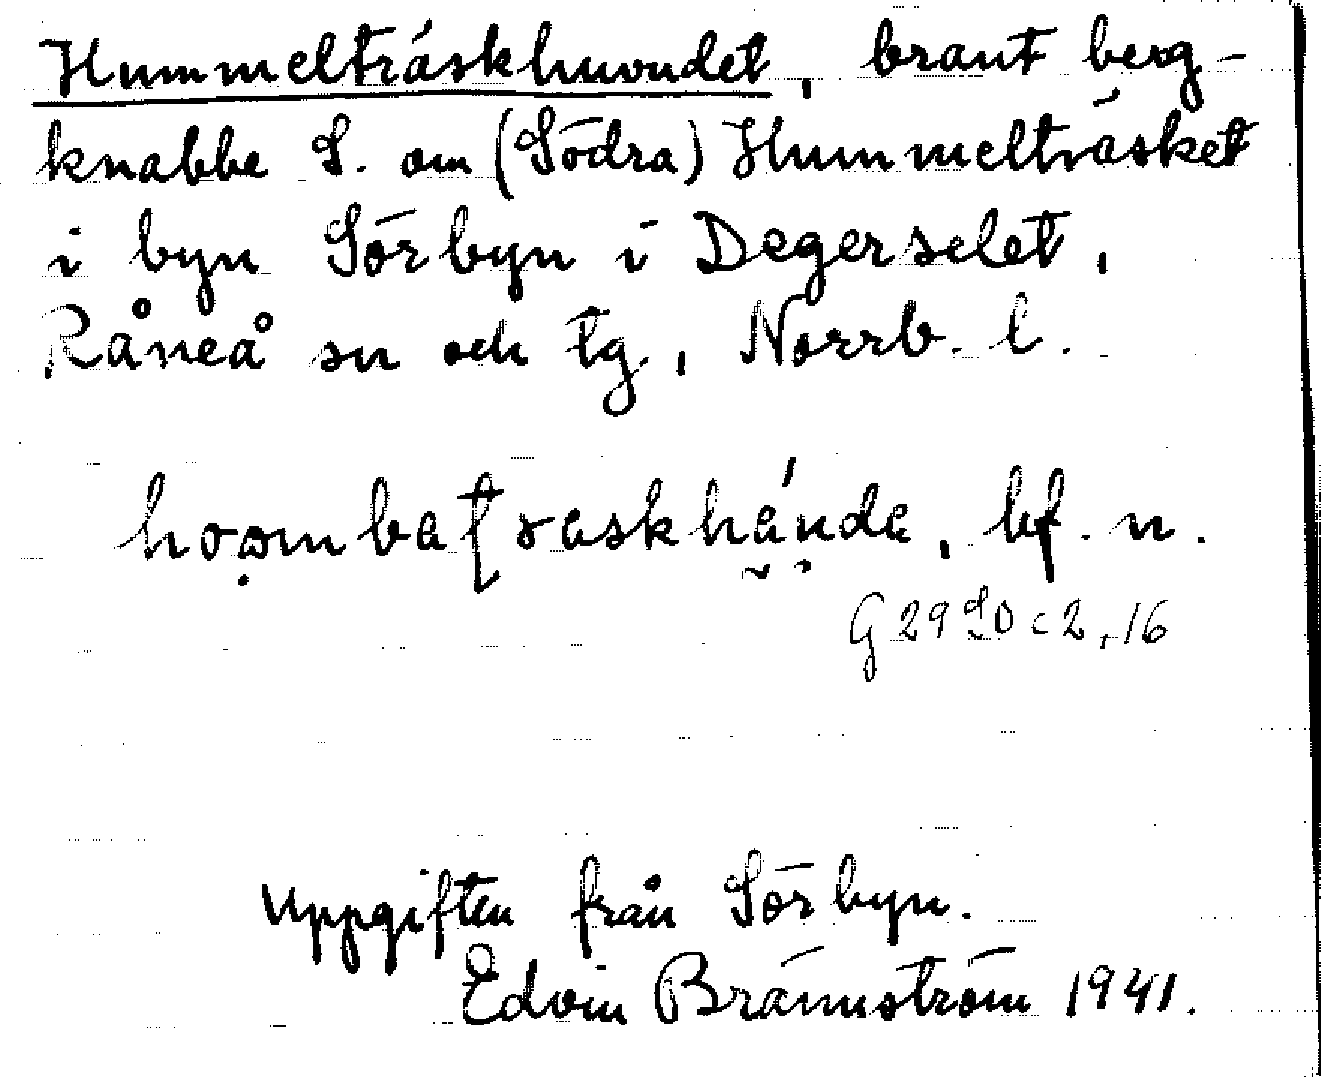 Hummelträskhuvudet, brant berg-
knabbe S. om (Södra) Hummelträsket
i byn Sörbyn i Degerselet,
Råneå sn och tg., Norrb. l.
bf. n.
G 29
Uppgiften från Sörbyn.
Edvin Brännström 1941.